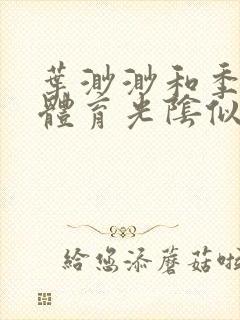 葉渺渺和季
體育光陰似
給您添蘑菇啦